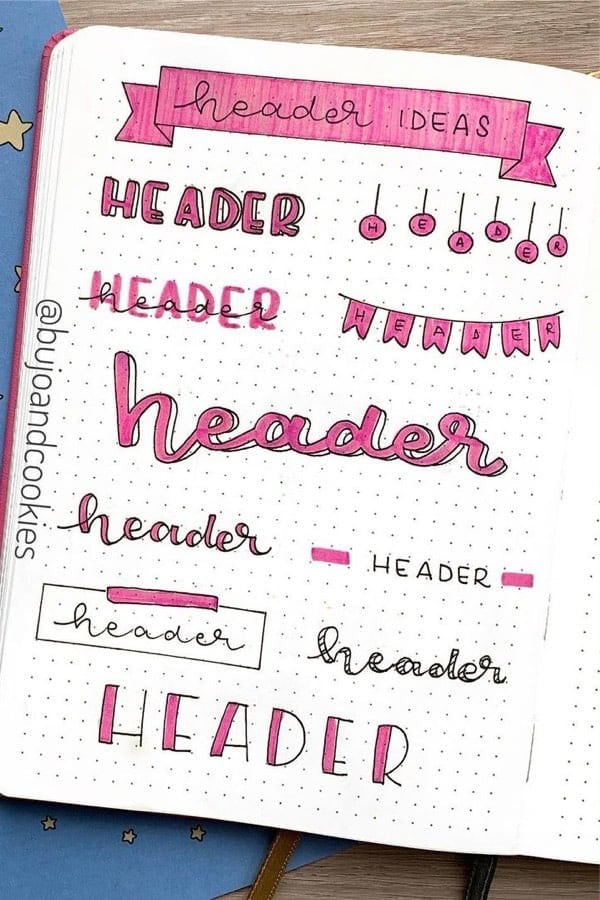 header IDEAS
HEADER
HEADER
HEADER
header
HEADER
header
header
HEADER
header
header
HEADER
@bujoandcookies